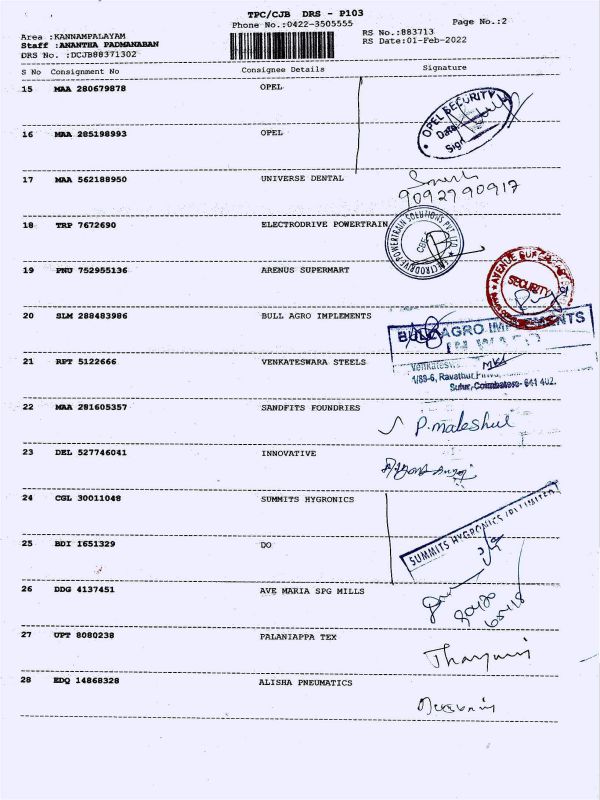 TPC/CJB DRS - P103
Phone No.:0422-3505555
Page No.:2
Area :KANNAMPALAYAM
RS No.:883713
Staff :ANANTHA PADMANABAN
RS Date:01-Feb-2022
DRS No. :DCJB88371302
S No Consignment No Consignee Details Signature
15 MAA 280679878 OPEL
OPEL SECURITY
Date
Sign
16 MAA 285198993 OPEL
17 MAA 562188950 UNIVERSE DENTAL
9092790917
18 TRP 7672690 ELECTRODRIVE POWERTRAIN
ELECTRODRIVE POWERTRAIN SOLUTIONS PVT LTD
CBE
19 PNU 752955136 ARENUS SUPERMART
AVENUE SUPER
SECURITY
20 SLM 288483986 BULL AGRO IMPLEMENTS
BULL AGRO IMPLEMENTS
21 RPT 5122666 VENKATESWARA STEELS
Venkatesw
1/89-6, Ravathur Pirivu,
Sulur, Coimbatore- 641 402.
22 MAA 281605357 SANDFITS FOUNDRIES
P.maleshul
23 DEL 527746041 INNOVATIVE
24 CGL 30011048 SUMMITS HYGRONICS
SUMMITS HYGRONICS (P) LIMITED
25 BDI 1651329 DO
26 DDG 4137451 AVE MARIA SPG MILLS
27 UPT 8080238 PALANIAPPA TEX
28 EDQ 14868328 ALISHA PNEUMATICS